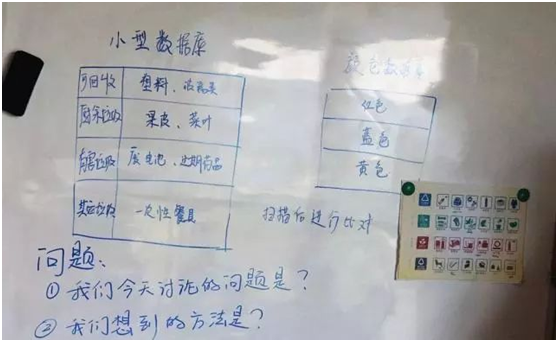 小型数据库
可回收 塑料、玻璃类
厨余垃圾 果皮、菜叶
有害垃圾 废电池、过期药品
其他垃圾 一次性餐具
颜色数据库
红色
蓝色
黄色
扫描后进行比对
问题:
①我们今天讨论的问题是?
②我们想到的方法是?